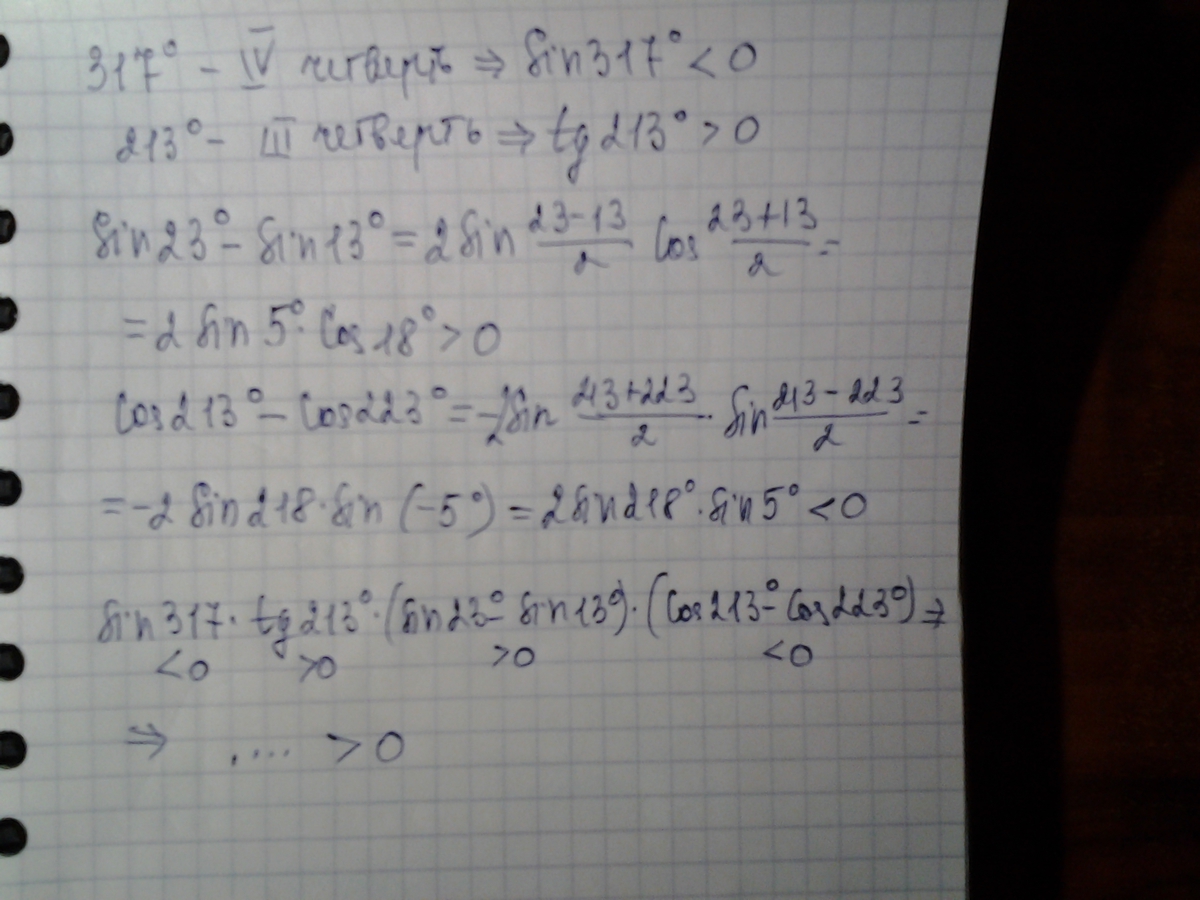 317° - IV четверть ⇒ sin317° < 0
213° - III четверть ⇒ tg213° > 0
sin23° - sin13° = 2sin (23-13)/2 cos (23+13)/2 =
= 2 sin5° · cos18° > 0
cos213° - cos223° = -2sin (213+223)/2 · sin (213-223)/2 =
= -2 sin218 · sin(-5°) = 2sin218° · sin5° < 0
sin317 · tg213° · (sin23° - sin13°) · (cos213° - cos223°) ⇒
<0 >0 >0 <0
⇒ .... > 0